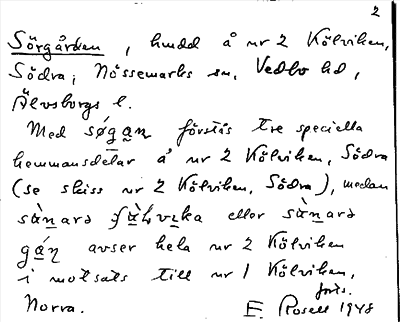 2
Sörgården, hmdd å nr 2 Kölviken,
Södra; Nössemarks sn, Vedbo hd,
Älvsborgs l.
Med søga̱ṉ förstås tre speciella
hemmansdelar å nr 2 Kölviken, Södra
(se skiss nr 2 Kölviken, Södra), medan
eller
avser hela nr 2 Kölviken
i motsats till nr 1 Kölviken,
Norra.
forts.
E. Rosell 1948